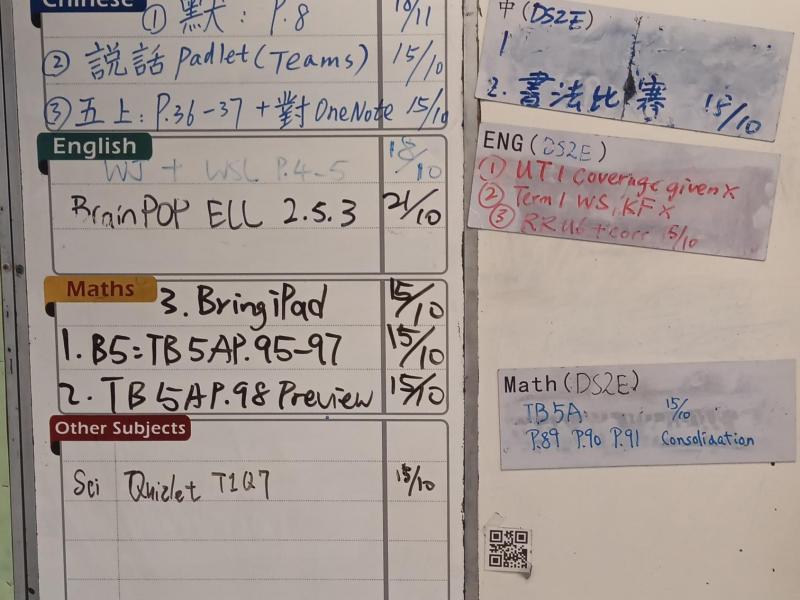 Chinese
① 默: P.8 10/11
② 說話 Padlet (Teams) 15/10
③ 五上: P.36-37 + 對 OneNote 15/10
English
WJ + WSL P.4-5 18/10
BrainPOP ELL 2.5.3 21/10
Maths
3. Bring iPad 15/10
1. B5: TB 5A P.95-97 15/10
2. TB 5A P.98 Preview 15/10
Other Subjects
Sci Quizlet T1Q7 15/10
中 (DS2E)
1
2. 書法比賽 15/10
ENG (DS2E)
① UT1 coverage given X
② Term 1 WS, KF X
③ RR U6 + corr 15/10
Math (DS2E)
TB 5A: 15/10
P.89 P.90 P.91 Consolidation